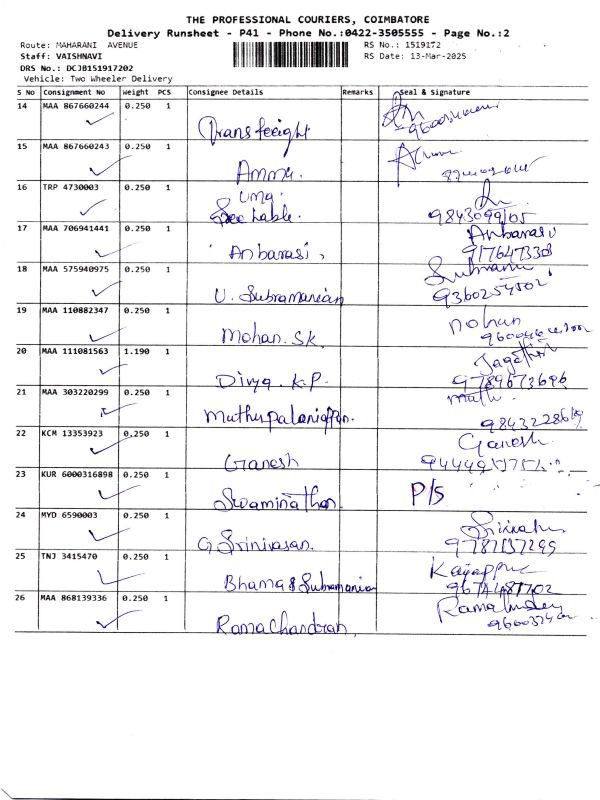 THE PROFESSIONAL COURIERS, COIMBATORE
Delivery Runsheet - P41 - Phone No.:0422-3505555 - Page No.:2
Route: MAHARANI AVENUE RS No.: 1519172
Staff: VAISHNAVI RS Date: 13-Mar-2025
DRS No.: DCJB151917202
Vehicle: Two Wheeler Delivery
S No Consignment No Weight PCS Consignee Details Remarks Seal & Signature
14 MAA 867660244 0.250 1
Transfeeight
15 MAA 867660243 0.250 1
Ammu.
16 TRP 4730003 0.250 1 Uma.
9843099105
17 MAA 706941441 0.250 1 Anbarasu
Anbarasi, 9176473308
18 MAA 575940975 0.250 1
U. Subramanian 9360254502
19 MAA 110882347 0.250 1 Mohan
Mohan. SK.
20 MAA 111081563 1.190 1
Divya. K.P. 9789673696
21 MAA 303220299 0.250 1 Muthu.
22 KCM 13353923 0.250 1 Ganesh
Ganesh
23 KUR 6000316898 0.250 1 P/S
Swaminathan
24 MYD 6590003 0.250 1
G Srinivasan. 9787137295
25 TNJ 3415470 0.250 1
Bhama & Subramanian 9674487702
26 MAA 868139336 0.250 1
Ramachandran